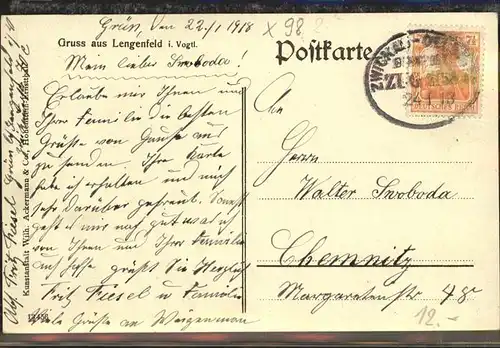 Grün, den 22/1 1918
x 98
Gruss aus Lengenfeld i. Vogtl.
Postkarte
Mein lieber Swoboda!
Erlaube mir Ihnen und
Ihrer Familie die besten
Grüße von Hause aus
zu senden. Ihre Karte
habe ich erhalten und mich
sehr darüber gefreut. Sonst
geht es mir noch gut was ich
von Ihnen und Ihrer Familie
auch hoffe. grüßt Sie Herzlich
Fritz Fiesel u Familie
Viele Grüße an
An
Herrn
Walter Swoboda
Chemnitz
Margaretenstr 48
12.-
ZWICKAU
ZUG
24.1.18
7½
Abs. Fritz Fiesel Grün b/Lengenfeld i/V
Kunstanstalt Wilh. Ackermann & Co.